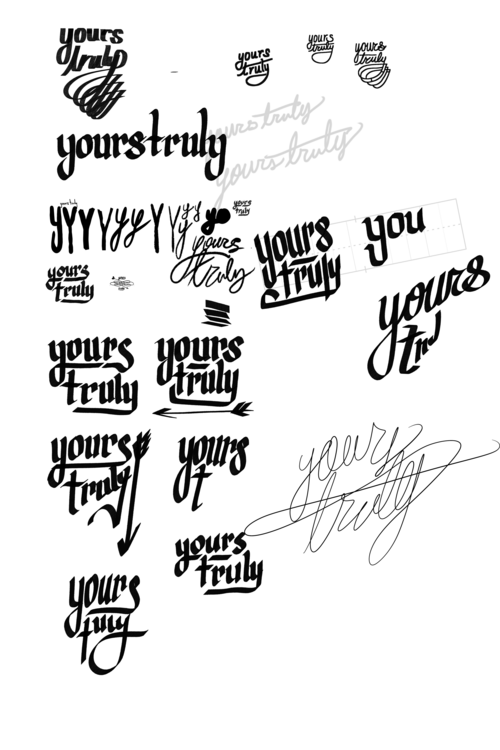 yours
truly
yours
truly
yours
truly
yours
truly
yourstruly
yours truly
yours truly
yours truly
yYYYyyyYYyyyy
yours
truly
yours
truly
yours
truly
you
yours
truly
yours
tru
yours
truly
yours
truly
yours
truly
yours
t
yours
truly
yours
truly
yours
truly